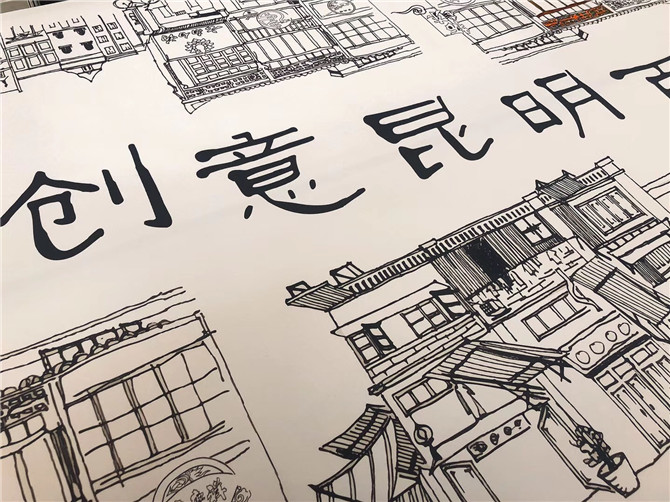 创意昆明百